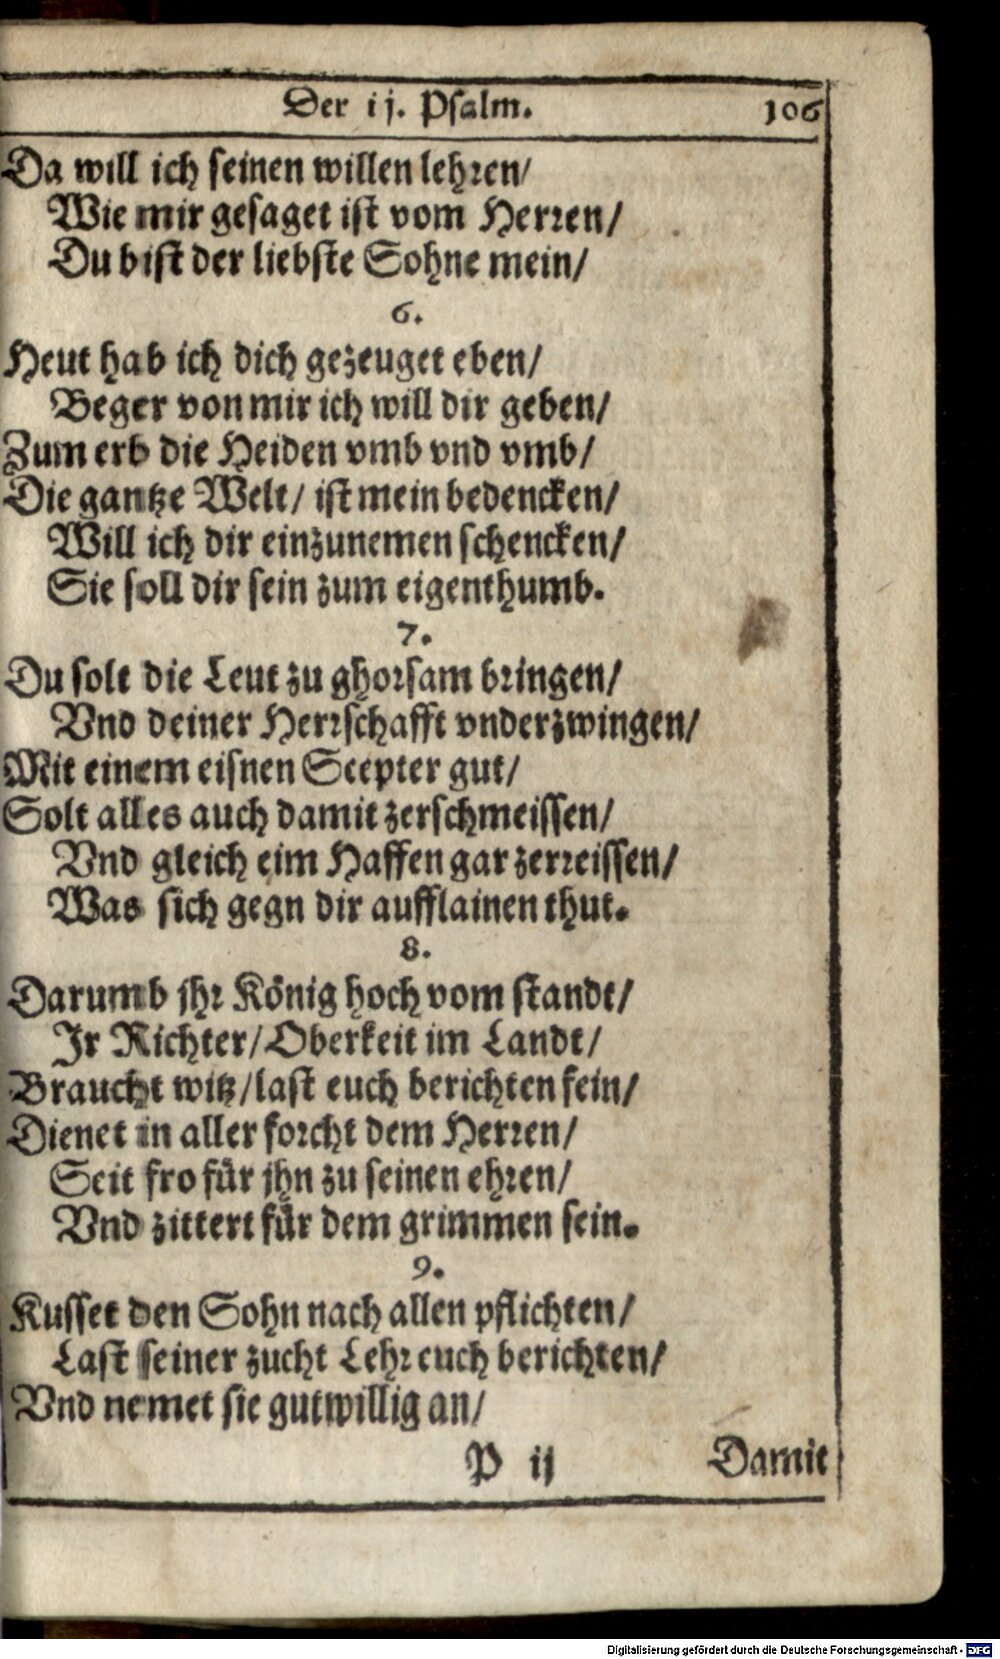 Der ij. Psalm. 106
Da will ich seinen willen lehren/
Wie mir gesaget ist vom Herren/
Du bist der liebste Sohne mein/
6.
Heut hab ich dich gezeuget eben/
Beger von mir ich will dir geben/
Zum erb die Heiden vmb vnd vmb/
Die gantze Welt/ ist mein bedencken/
Will ich dir einzunemen schencken/
Sie soll dir sein zum eigenthumb.
7.
Du solt die Leut zu ghorsam bringen/
Vnd deiner Herrschafft vnderzwingen/
Mit einem eisnen Scepter gut/
Solt alles auch damit zerschmeissen/
Vnd gleich eim Haffen gar zerreissen/
Was sich gegn dir aufflainen thut.
8.
Darumb jhr König hoch vom standt/
Jr Richter/ Oberkeit im Landt/
Braucht witz/ last euch berichten fein/
Dienet in aller forcht dem Herren/
Seit fro für jhn zu seinen ehren/
Vnd zittert für dem grimmen sein.
9.
Kusset den Sohn nach allen pflichten/
Last seiner zucht Lehr euch berichten/
Vnd nemet sie gutwillig an/
P ij Damit
Digitalisierung gefördert durch die Deutsche Forschungsgemeinschaft - DFG